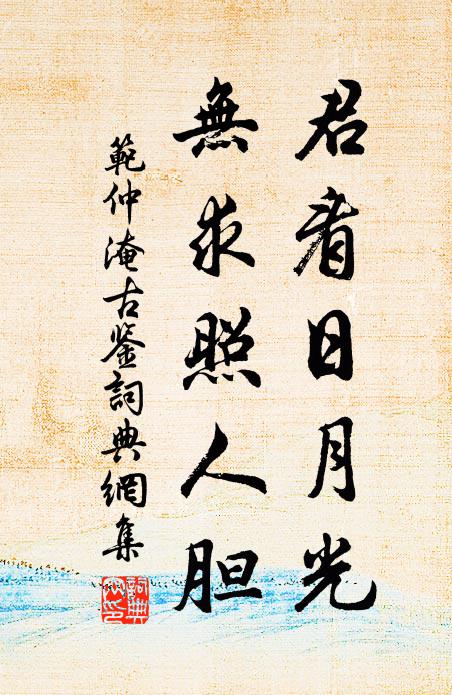 君看日月光
無求照人胆
範仲淹古鉴詞典網集
詞典